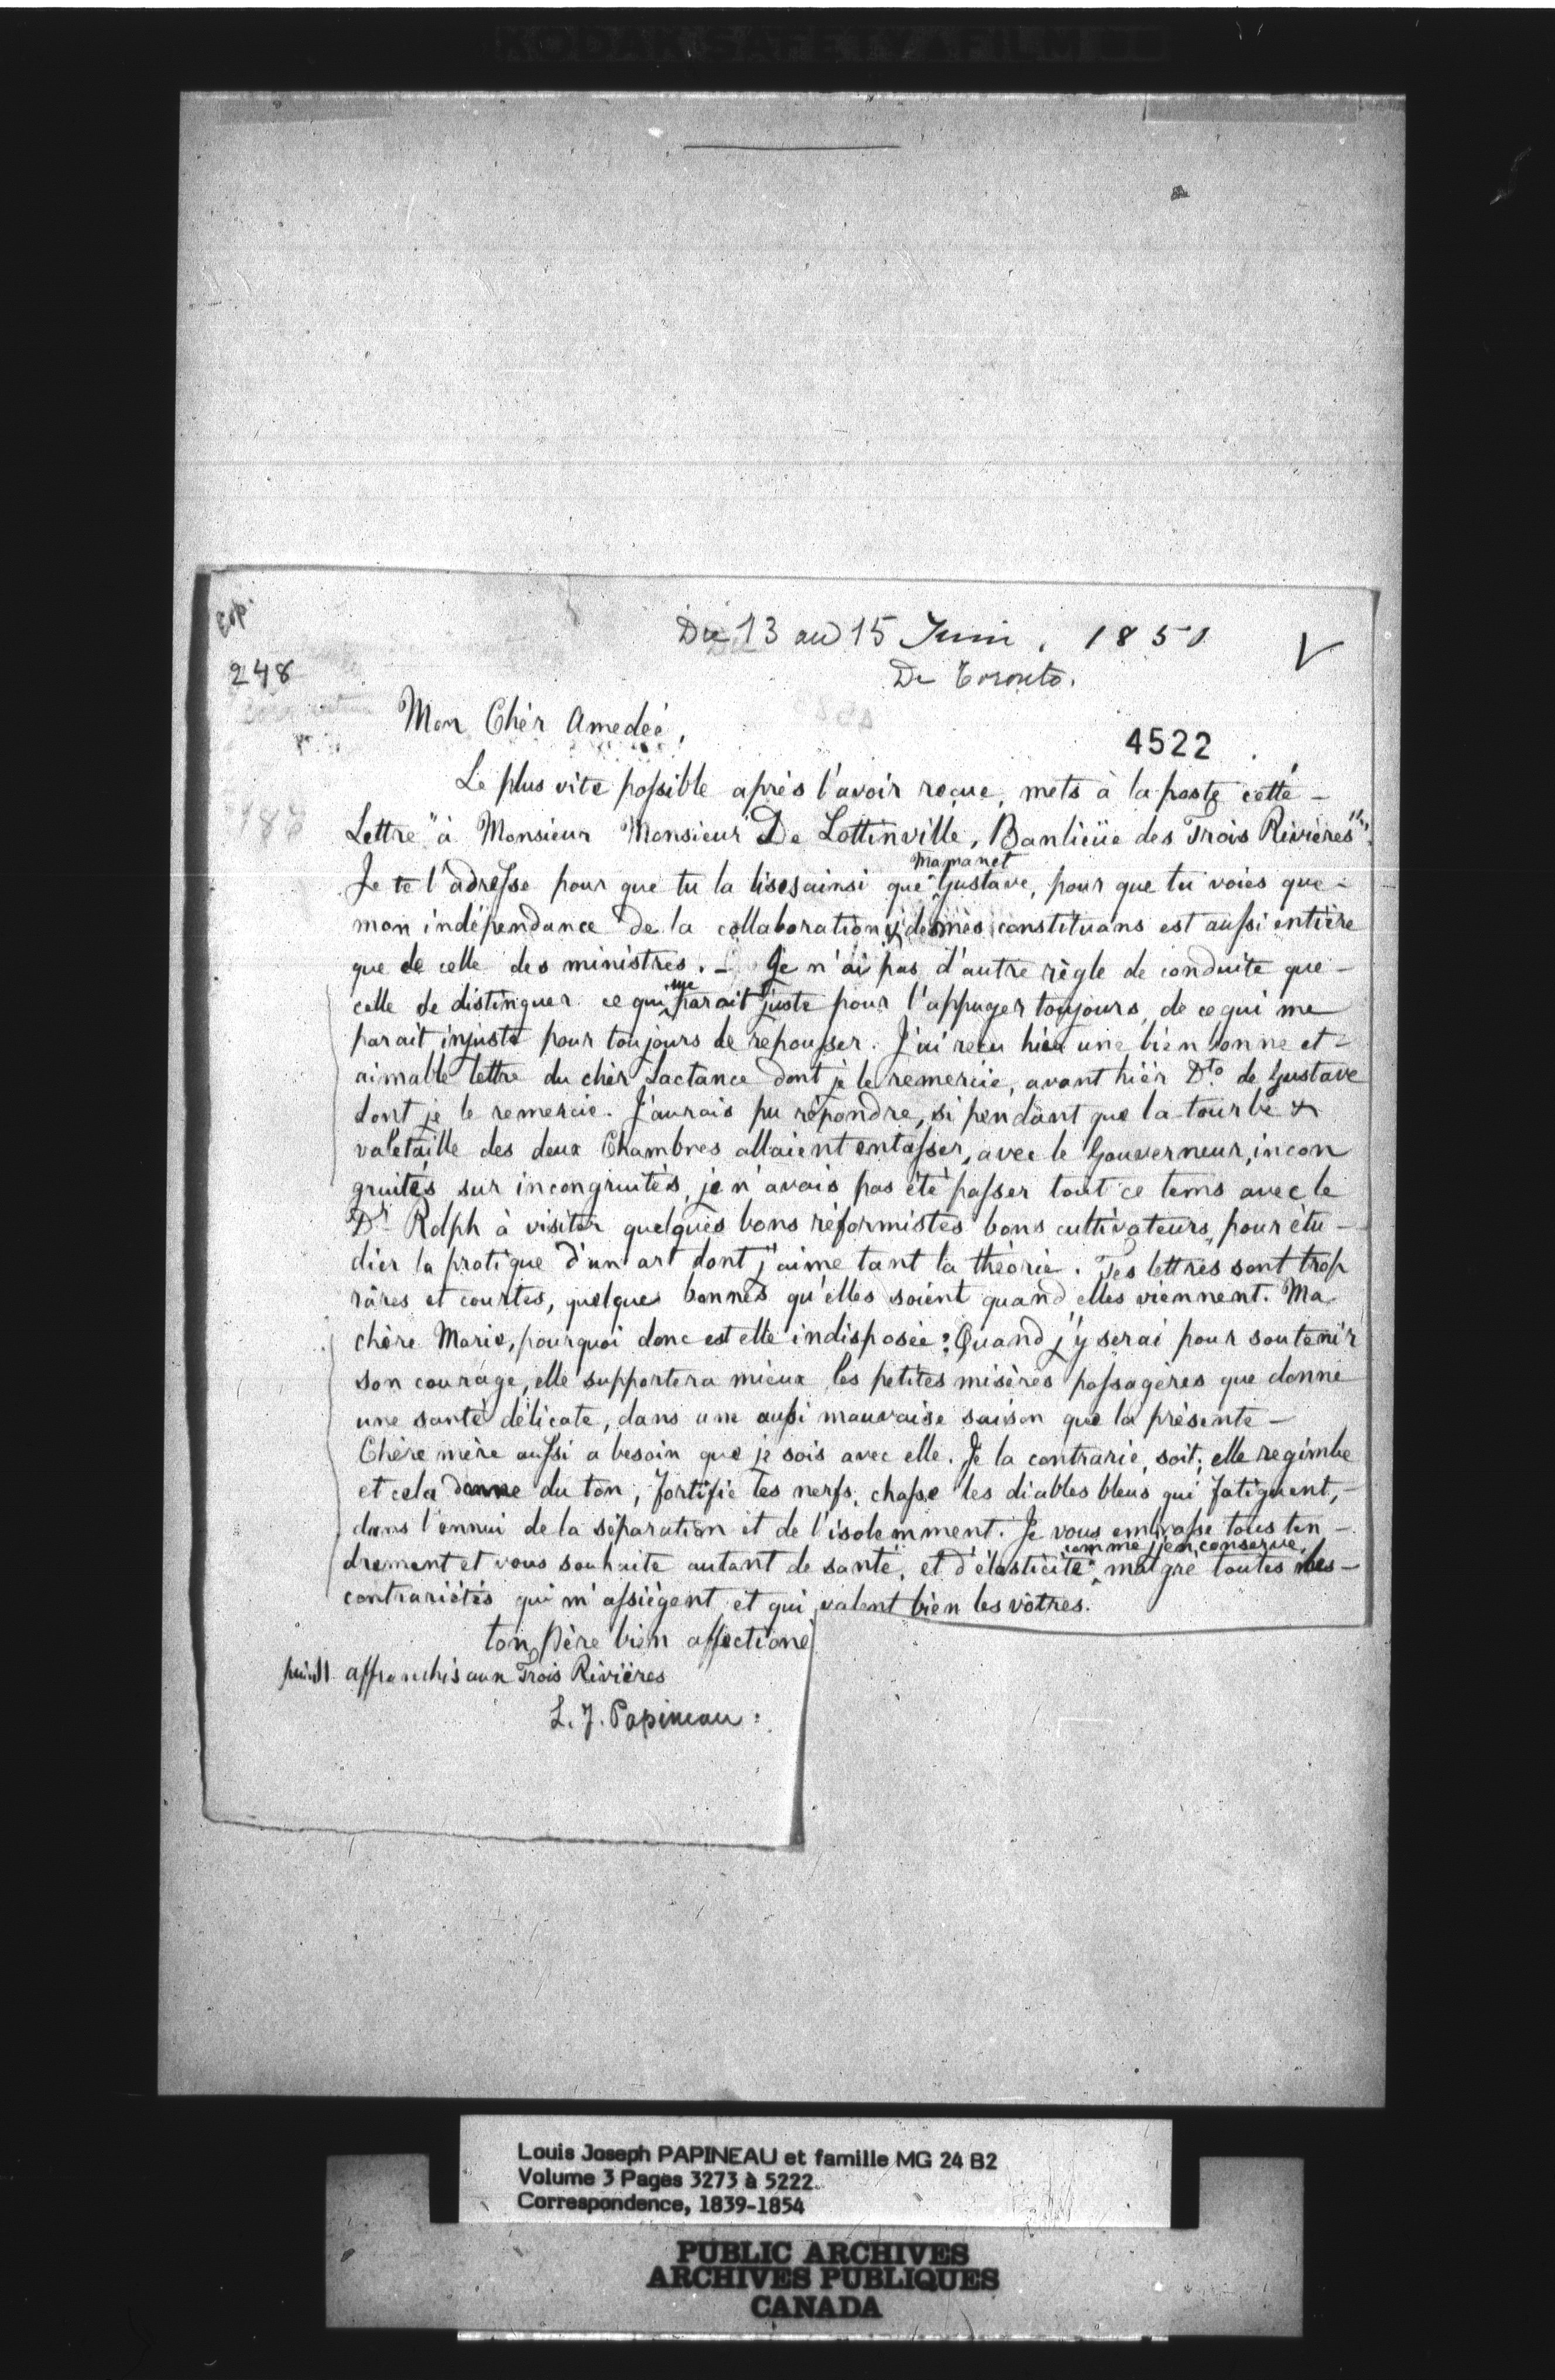 KODAK SAFETY FILM
Cop.
Du 13 au 15 Juin, 1850
V
248
De Toronto.
Mon Chèr Amedeé,
4522
Le plus vite possible après l'avoir reçue, mets à la poste cette -
Lettre "à Monsieur Monsieur De Lottinville, Banlieüe des Trois Rivières".
Maman et
Je te l'adresse pour que tu la lises ainsi que Gustave, pour que tu voies que -
mon indépendance de la collaboration & de mes constituans est aussi entière
que de celle des ministres. - Je n'ai pas d'autre règle de conduite que -
me
celle de distinguer ce qui parait juste pour l'appuyer toujours, de ce qui me
parait injuste pour toujours le repousser. J'ai reçu hier une bien bonne et -
aimable lettre du chèr Lactance dont je le remercie, avant hièr Dto de Gustave
dont je le remercie. J'aurais pu répondre, si pendant que la tourbe &
valetaille des deux Chambres allaient entasser, avec le Gouverneur, incon
gruités sur incongruités, je n'avais pas été passer tout ce tems avec le
Dr Rolph à visiter quelques bons réformistes bons cultivateurs, pour étu -
dier la pratique d'un art dont j'aime tant la théorie. Tes lettres sont trop
râres et courtes, quelques bonnes qu'elles soient quand elles viennent. Ma
chère Marie, pourquoi donc est elle indisposée? Quand j'y serai pour soutenir
son courage, elle supportera mieux les petites misères passagères que donne
une santé délicate, dans une aussi mauvaise saison que la présente -
Chère mère aussi a besoin que je sois avec elle. Je la contrarie, soit; elle regimbe
et cela donne du ton, fortifie les nerfs, chasse les diables bleus qui fatiguent, -
dans l'ennui de la séparation et de l'isolemment. Je vous embrasse tous ten -
comme j'en conserve,
drement et vous souhaite autant de santé, et d'élasticité malgré toutes les -
contrariétés qui m'assiègent et qui valent bien les vôtres.
ton Père bien affectioné
affranchis aux Trois Rivières
L. J. Papineau.
Louis Joseph PAPINEAU et famille MG 24 B2
Volume 3 Pages 3273 à 5222.
Correspondence, 1839-1854
PUBLIC ARCHIVES
ARCHIVES PUBLIQUES
CANADA